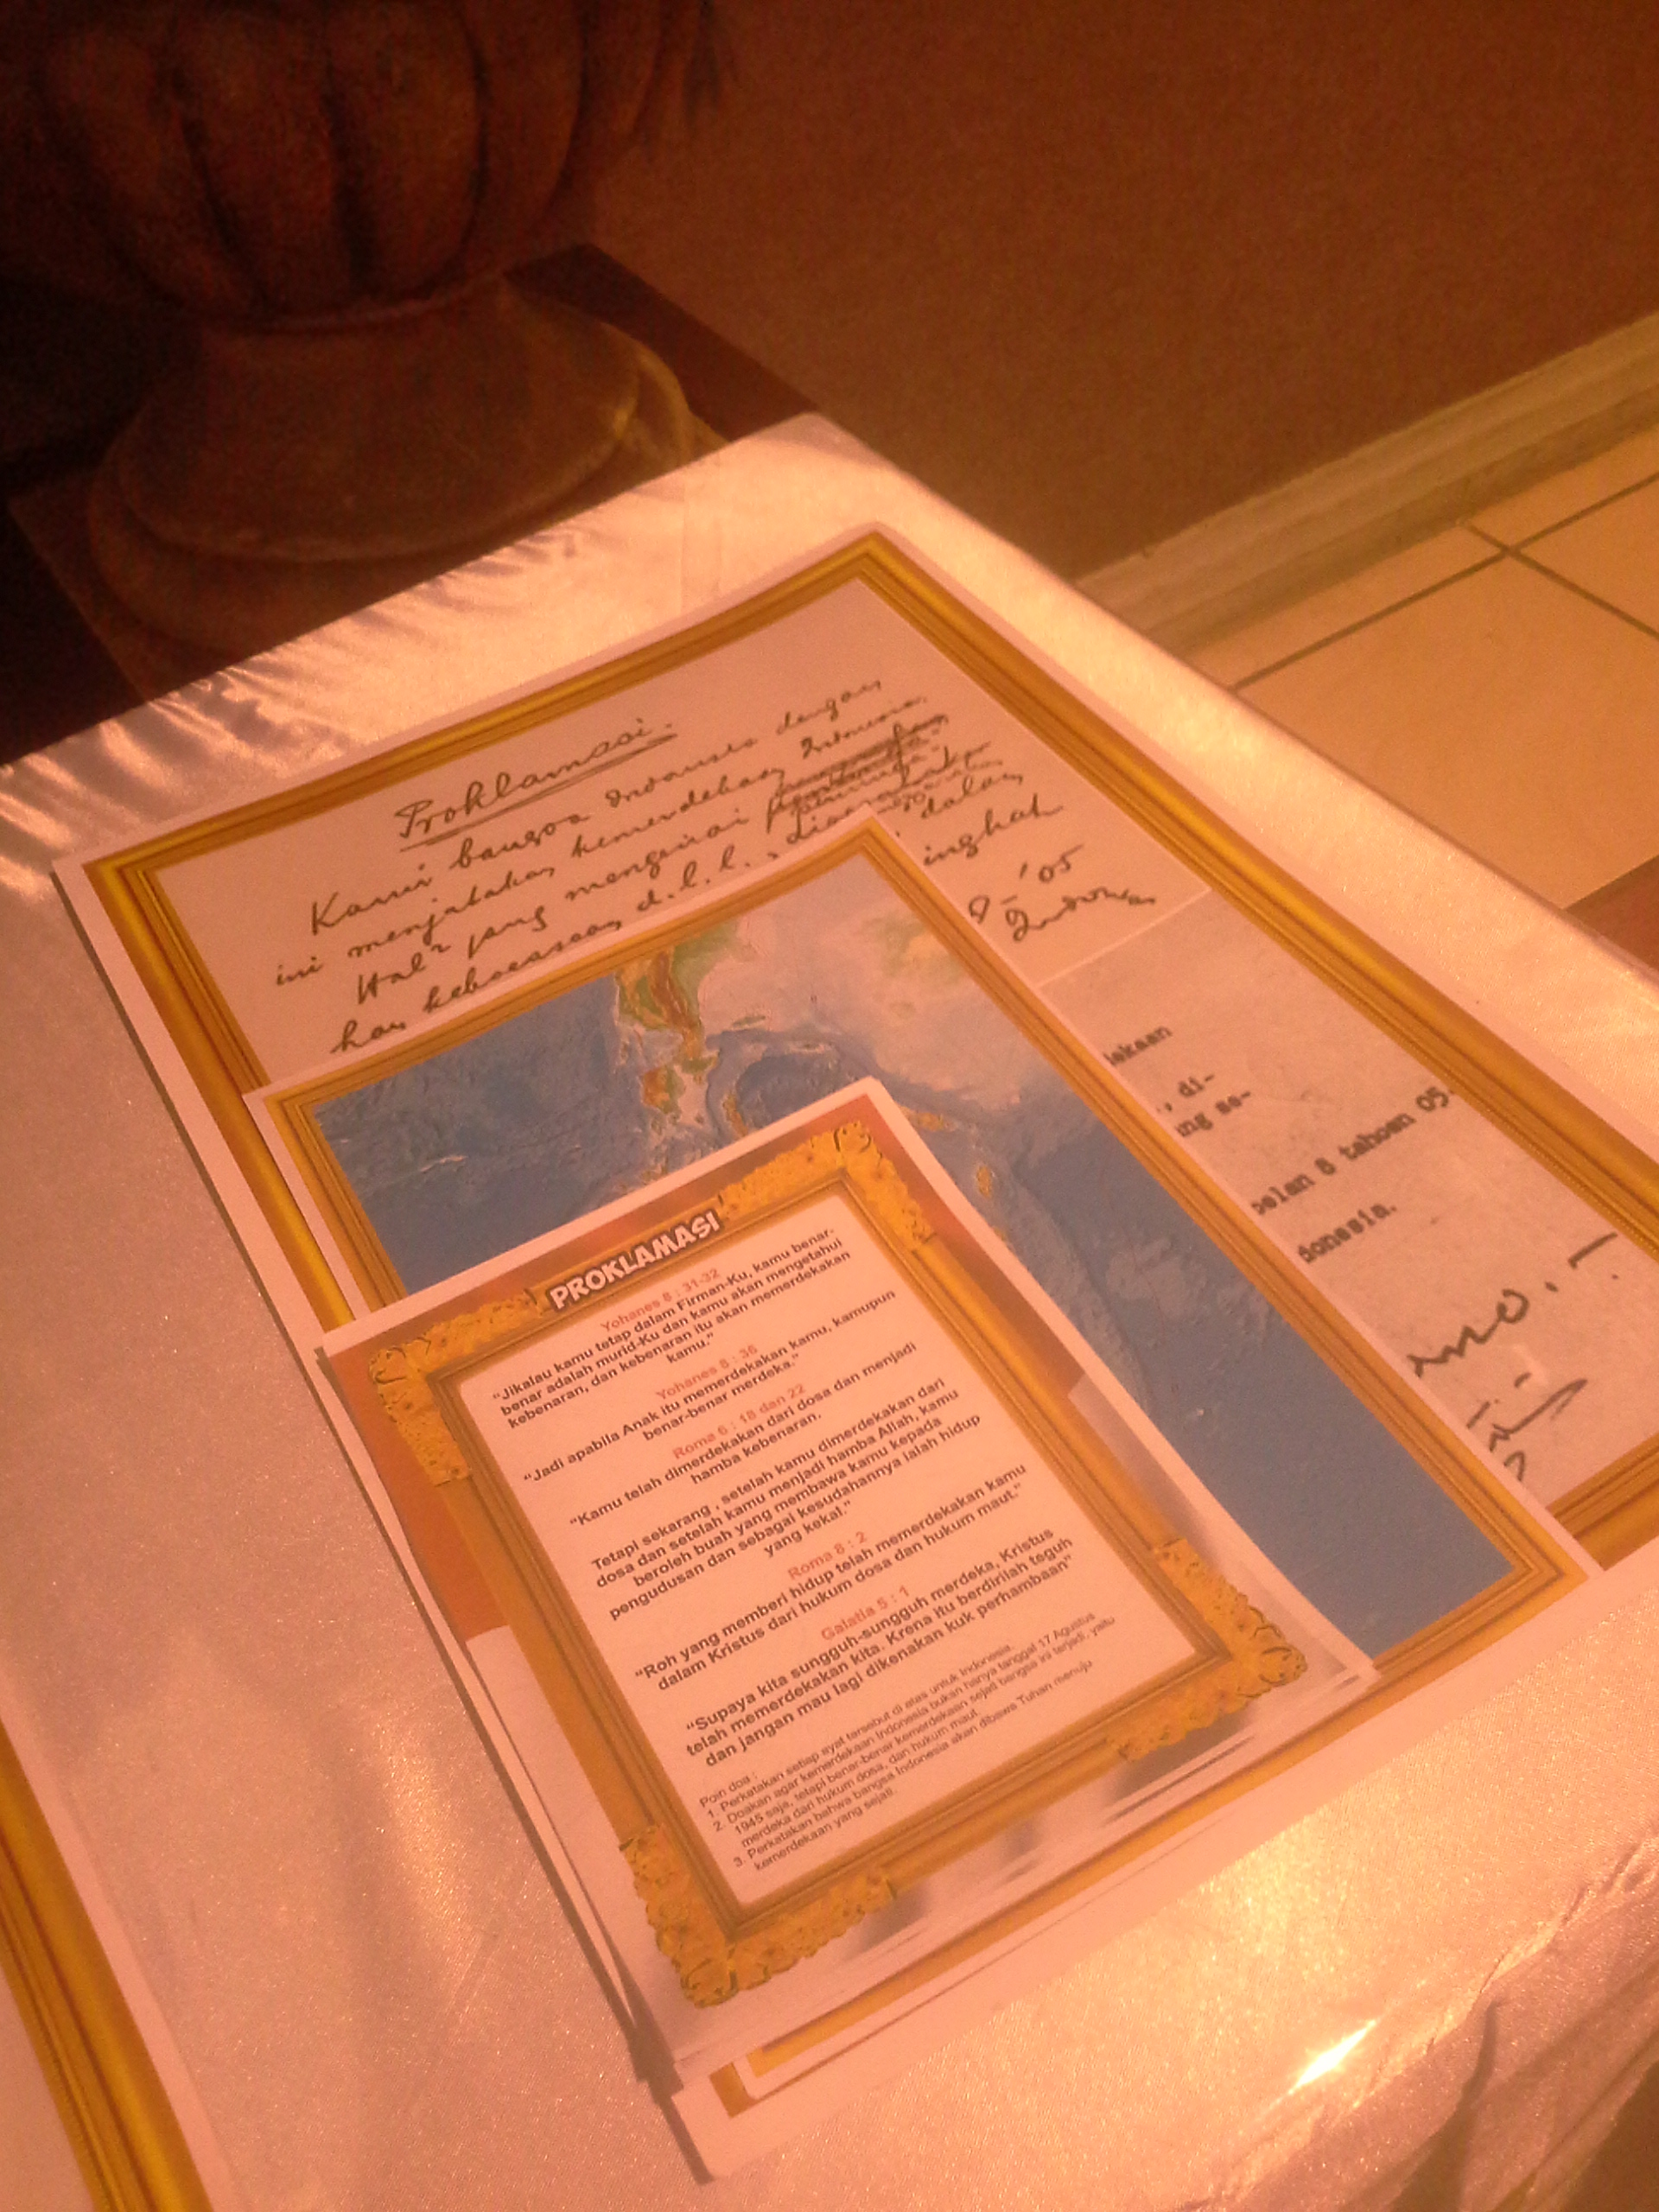 Proklamasi.
Kami bangsa Indonesia dengan
ini menjatakan kemerdekaan Indonesia.
Hal² jang mengenai
kan kekoeasaan d.l.l., diselenggarakan
dalam
ingkat
'05
Indonesia
iekaan
., di-
ng se-
oelan 8 tahoen 05.
donesia.
PROKLAMASI
Yohanes 8 : 31-32
"Jikalau kamu tetap dalam Firman-Ku, kamu benar-
benar adalah murid-Ku dan kamu akan mengetahui
kebenaran, dan kebenaran itu akan memerdekakan
kamu."
Yohanes 8 : 36
"Jadi apabila Anak itu memerdekakan kamu, kamupun
benar-benar merdeka."
Roma 6 : 18 dan 22
"Kamu telah dimerdekakan dari dosa dan menjadi
hamba kebenaran.
Tetapi sekarang , setelah kamu dimerdekakan dari
dosa dan setelah kamu menjadi hamba Allah, kamu
beroleh buah yang membawa kamu kepada
pengudusan dan sebagai kesudahannya ialah hidup
yang kekal."
Roma 8 : 2
"Roh yang memberi hidup telah memerdekakan kamu
dalam Kristus dari hukum dosa dan hukum maut."
Galatia 5 : 1
"Supaya kita sungguh-sungguh merdeka, Kristus
telah memerdekakan kita. Krena itu berdirilah teguh
dan jangan mau lagi dikenakan kuk perhambaan"
Poin doa :
1. Perkatakan setiap ayat tersebut di atas untuk Indonesia.
2. Doakan agar kemerdekaan Indonesia bukan hanya tanggal 17 Agustus
1945 saja, tetapi benar-benar kemerdekaan sejati bangsa ini terjadi, yaitu
merdeka dari hukum dosa, dan hukum maut.
3. Perkatakan bahwa bangsa Indonesia akan dibawa Tuhan menuju
kemerdekaan yang sejati.